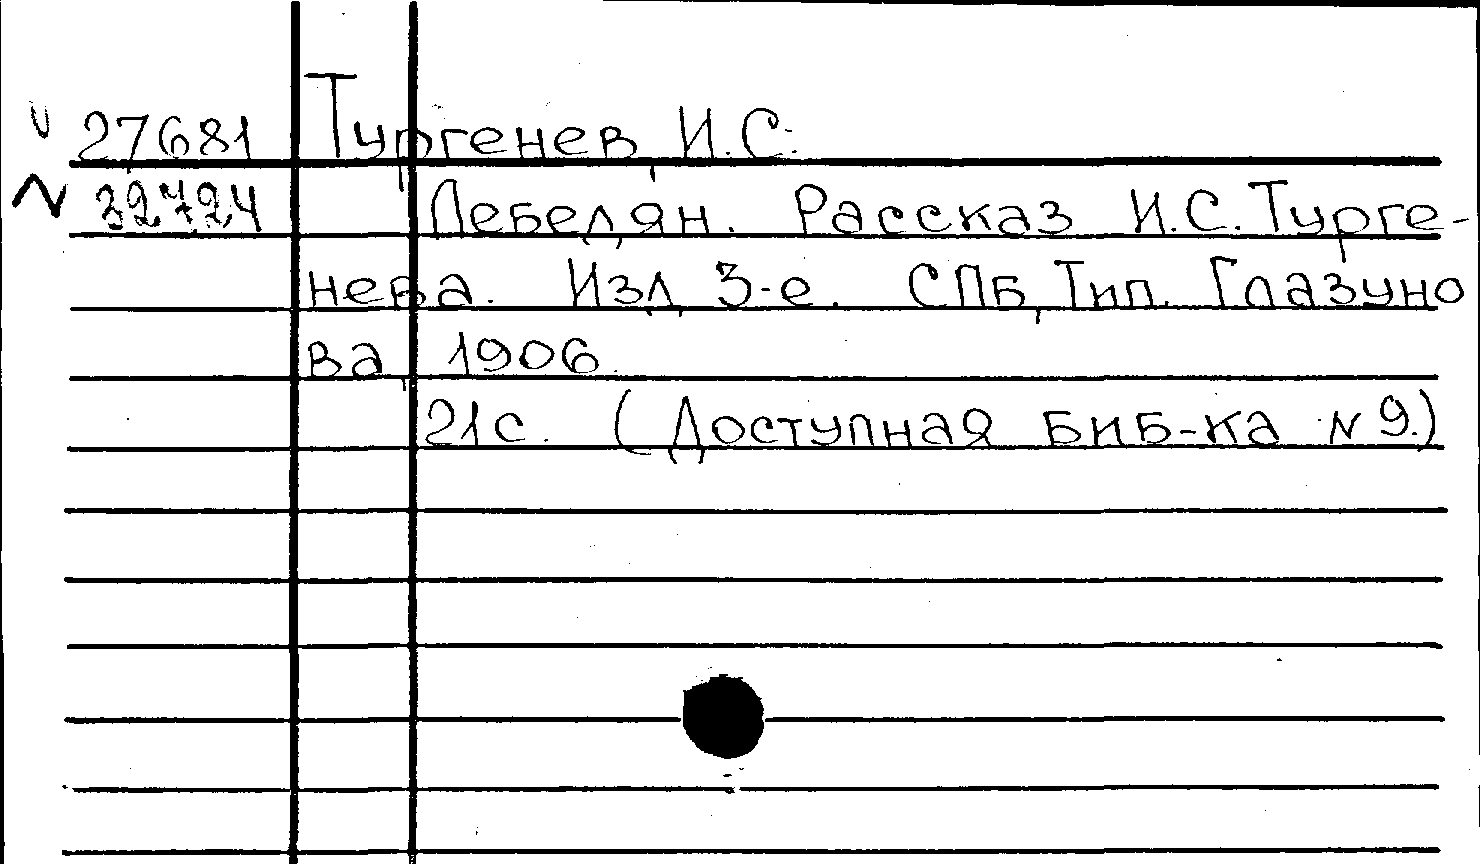 27681 Тургенев, И.С.
N 32724 Лебедян. Рассказ И.С. Турге-
нева. Изд. 3-е. СПб, Тип. Глазуно
ва, 1906.
21с. (Доступная биб-ка N 9.)